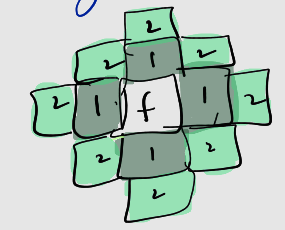 2
2 1 2
2 1 f 1 2
2 1 2
2